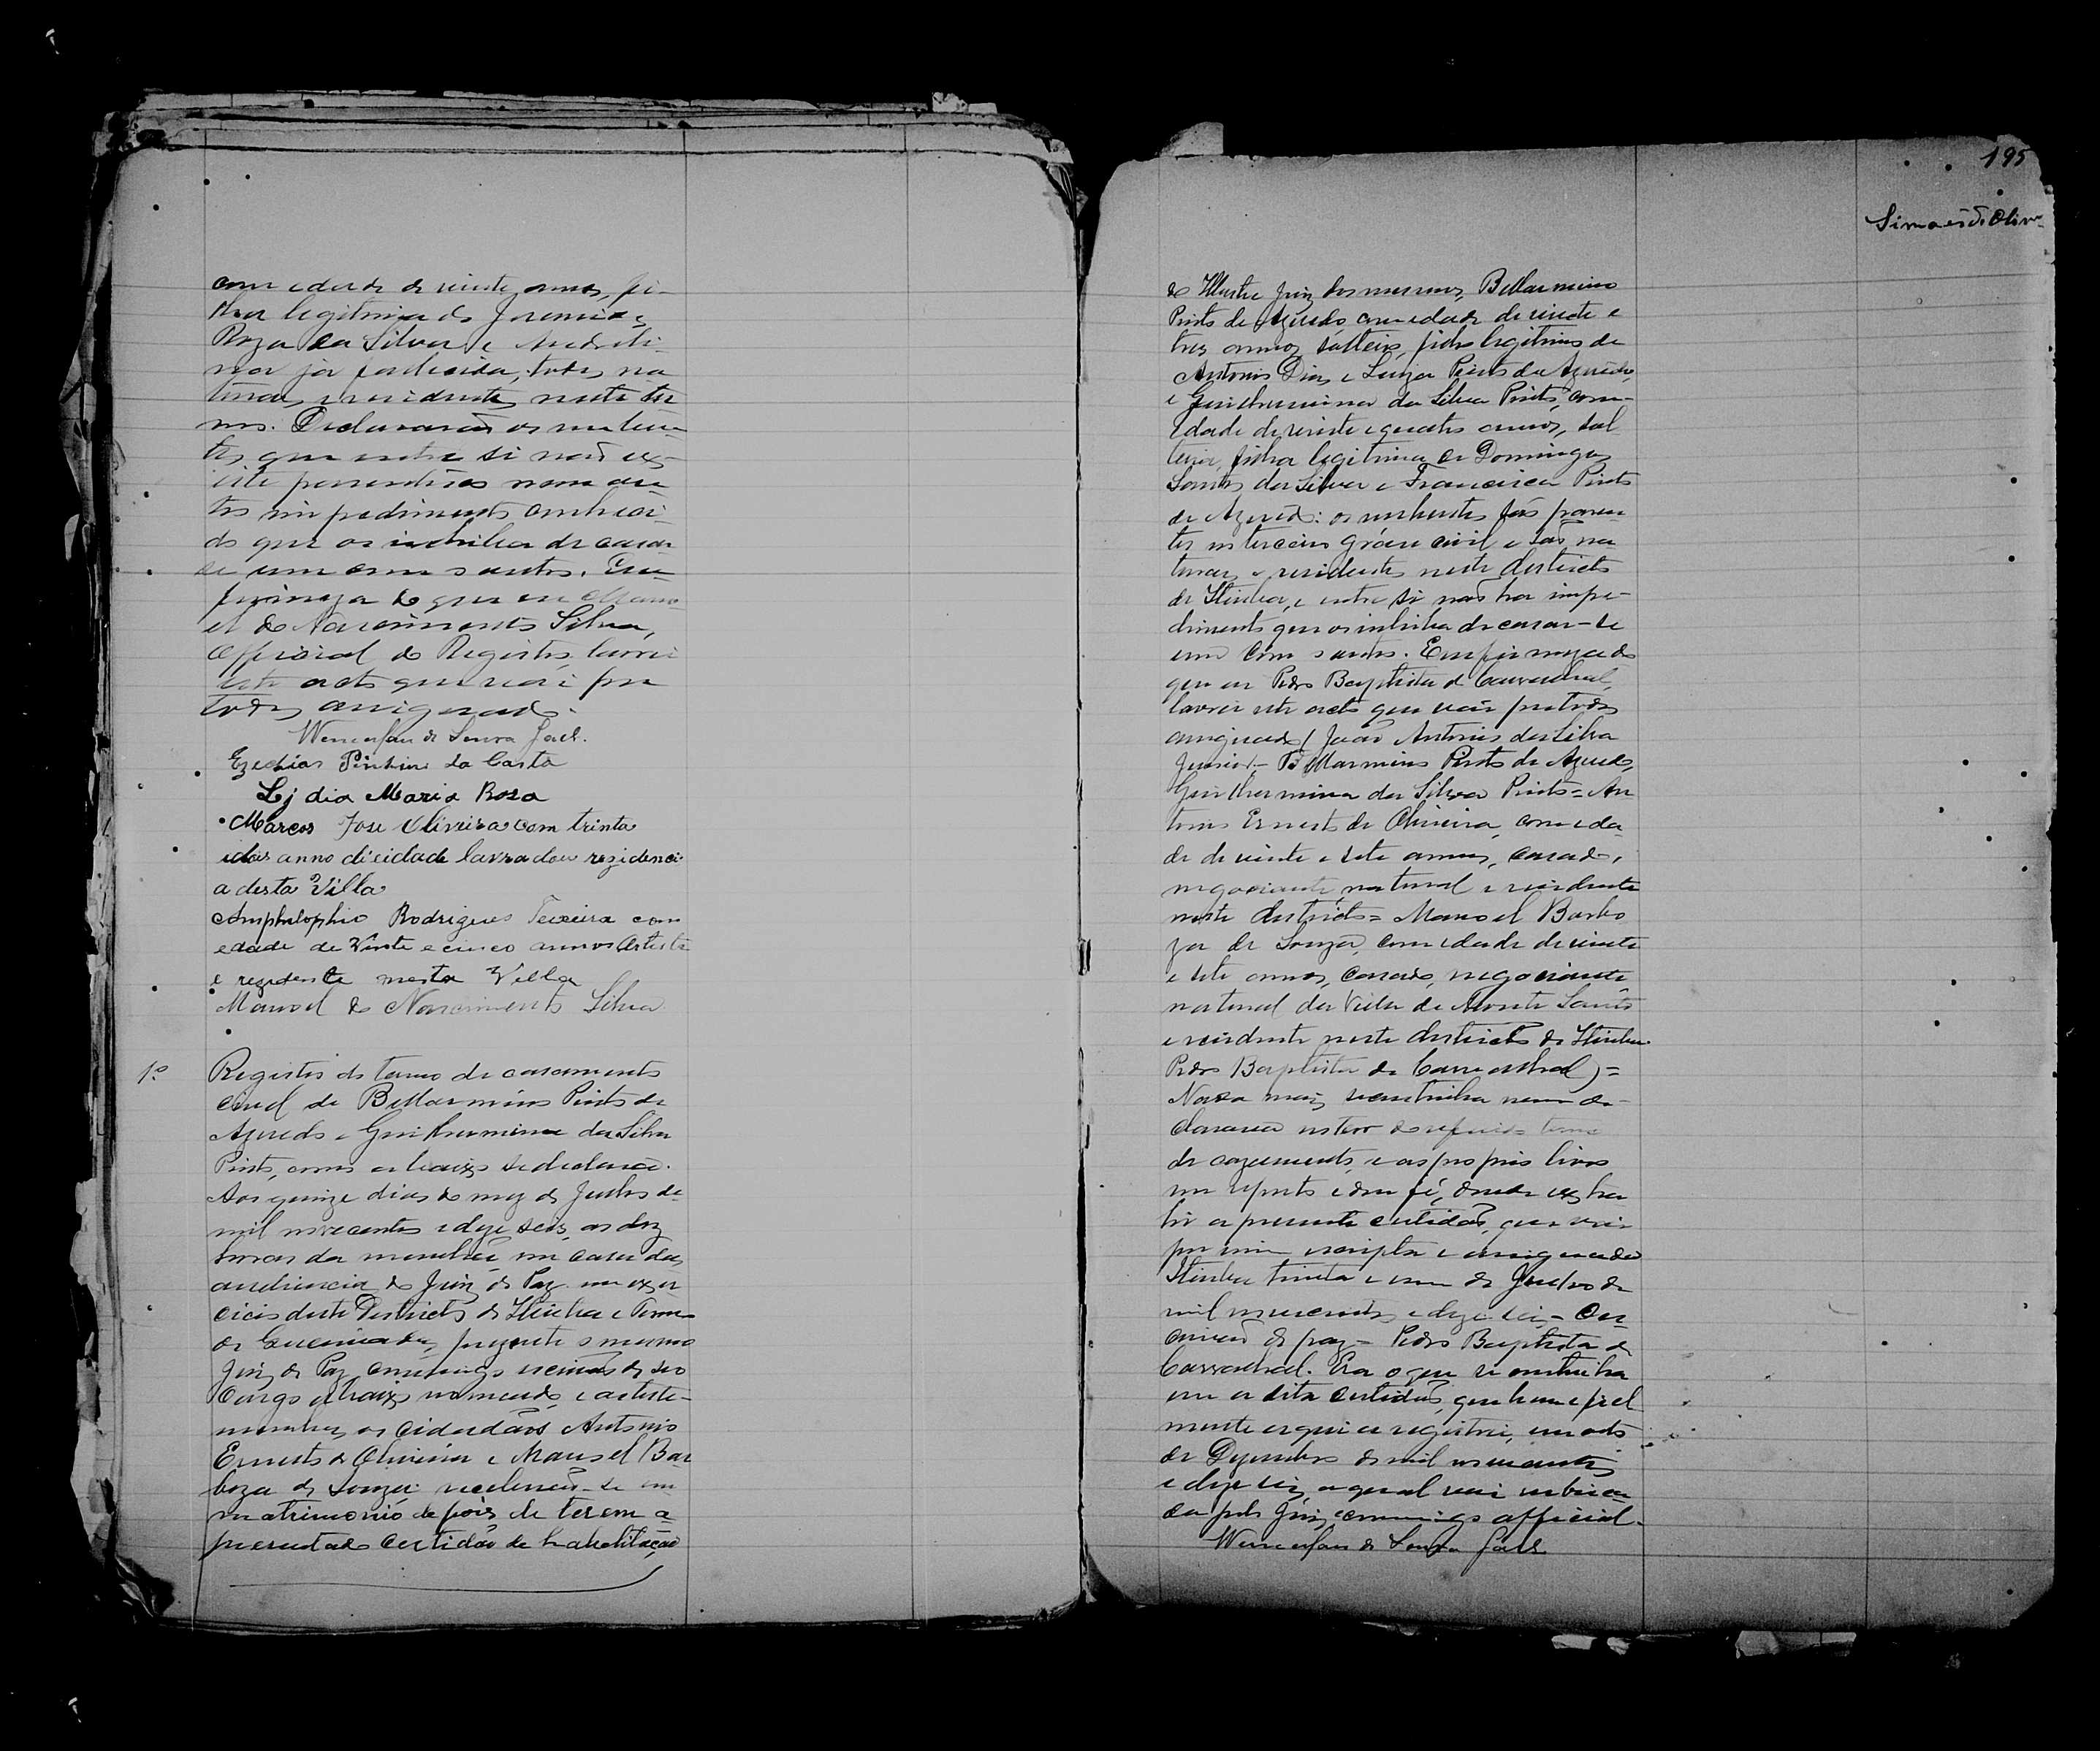 com edade de vinte annos, fi-
lha legitima de Jeremias
Roza da Silva e Andreli-
na já fallecida, todos na
turaes e residentes neste ter
mo. Declararão os nuben-
tes que entre si não ex-
iste parentesco nem ou-
tro impedimento conheci-
do que os inhiba de casar
se um com o outro. Em
firmeza do que eu Mano-
el do Nascimento Silva,
Official do Registro, lavrei
este acto que vai por
todos assignado.
Wenceslau de Souza
Ezechias Pinheiro da Costa
Lj dia Maria Rosa
Marcos José Oliveira com trinta
idois anno dicidade lavrador rezidenci
a desta Villa
Amphilophio Rodrigues Teixeira com
edade de Vinte e cinco annos Artista
e rezidente nesta Villa
Manoel do Nascimento Silva
1º Registro do termo de casamento
civil de Bellarmino Pinto de
Azeredo e Guilhermina da Silva
Pinto, como a baixo se declara.
Aos quinze dias do mez de Julho de
mil novecentos e deze seis, as dez
horas da manhã, em casa das
audiencia do Juiz de Paz em exer
cicio deste Districto de Itiuba e Termo
de Queimadas, prezente o mesmo
Juiz de Paz commigo escrivão de seo
Cargo a baixo nomeado, e as teste-
munhas os cidadãos Antonio
Ernesto de Oliveira e Manoel Bar
boza de Souza: receberão-se em
matrimonio depois de terem a-
presentado certidão de habelitação
195
Simões de Olivra
do Illustre Juiz dos mesmos, Bellarmino
Pinto de Azeredo, com edade de vinte e
tres annos, solteiro, filho legitimo de
Antonio Dias e Luiza Pinto de Azeredo,
e Guilhermina da Silva Pinto, com
edade de vinte e quatro annos, sol
teira, filha legitima de Domingos
da Silva e Francisca Pinto
de Azeredo: os nubentes são paren
tes no terceiro gráu civil e são na
turaes e residentes neste districto
de Itiuba, e entre si não ha impe-
dimento que os inhiba de casar-se
um com o outro. Em firmeza do
que eu Pedro Baptista de Carvalhal,
lavrei este acto que vai por todos
assignado / João Antonio da Silva
Junior - Bellarmino Pinto de Azeredo,
Guilhermina da Silva Pinto = An
tonio Ernesto de Oliveira, com eda-
de de vinte e sete annos, casado,
negociante, natural e residente
neste districto = Manoel Barbo
za de Souza, com edade de vinte
e sete annos, casado, negociante
natural da Villa de Monte Santo
e residente neste districto de Itiuba
Pedro Baptista de Carvalhal) =
Nada mais se continha nem de-
clarava no teor do referido termo
de cazamento, e ao proprio livro
me reporto e dou fé, donde extra
hi a presente certidão, que vai
por mim escripta e assignada
Itiuba trinta e um de Julho de
mil novecentos e deze seis - O es-
crivão de paz - Pedro Baptista de
Carvalhal. Era o que se continha
em a dita certidão, que bem e fiel
mente aqui a registrei, em oito
de Dezembro de mil novecentos
e deze seis, a qual vai rubrica-
da pelo Juiz, commigo official.
Wenceslau de Souza